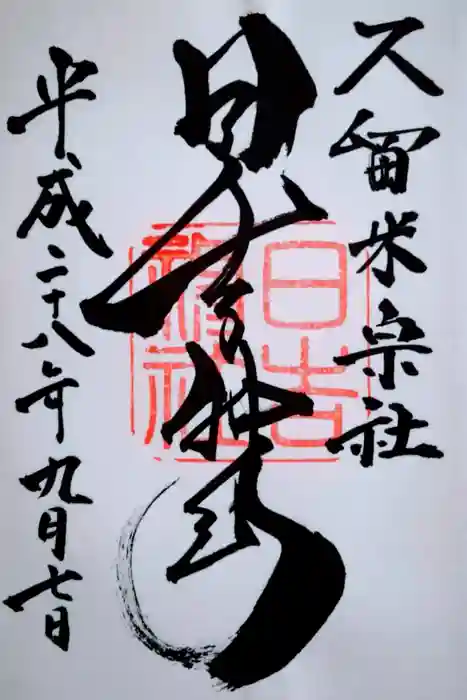 久留米宗社
日吉神社
平成二十八年九月七日
日吉
神社